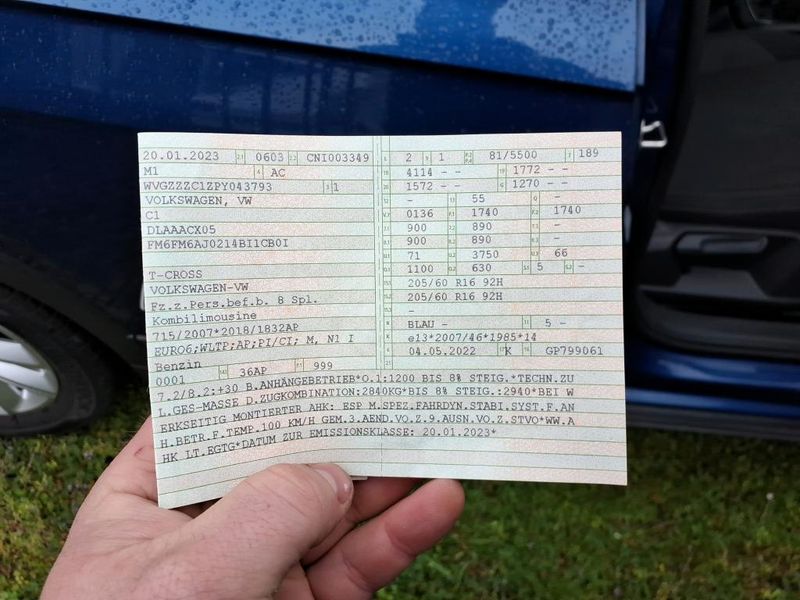 20.01.2023 0603 CNI003349
M1 AC
WVGZZZC1ZPY043793 1
VOLKSWAGEN, VW
C1
DLAAACX05
FM6FM6AJ0214BI1CB0I
T-CROSS
VOLKSWAGEN-VW
Fz.z.Pers.bef.b. 8 Spl.
Kombilimousine
715/2007*2018/1832AP
EURO6;WLTP;AP;PI/CI; M, N1 I
Benzin
0001 36AP 999
2 1 81/5500 189
4114 - - 1772 - -
1572 - - 1270 - -
- 55 -
0136 1740 1740
900 890 -
900 890 -
71 3750 66
1100 630 5 -
205/60 R16 92H
205/60 R16 92H
-
BLAU - 5 -
e13*2007/46*1985*14
04.05.2022 K GP799061
7.2/8.2:+30 B.ANHÄNGEBETRIEB*O.1:1200 BIS 8% STEIG.*TECHN.ZU
L.GES-MASSE D.ZUGKOMBINATION:2840KG*BIS 8% STEIG.:2940*BEI W
ERKSEITIG MONTIERTER AHK: ESP M.SPEZ.FAHRDYN.STABI.SYST.F.AN
H.BETR.F.TEMP.100 KM/H GEM.3.AEND.VO.Z.9.AUSN.VO.Z.STVO*WW.A
HK LT.EGTG*DATUM ZUR EMISSIONSKLASSE: 20.01.2023*